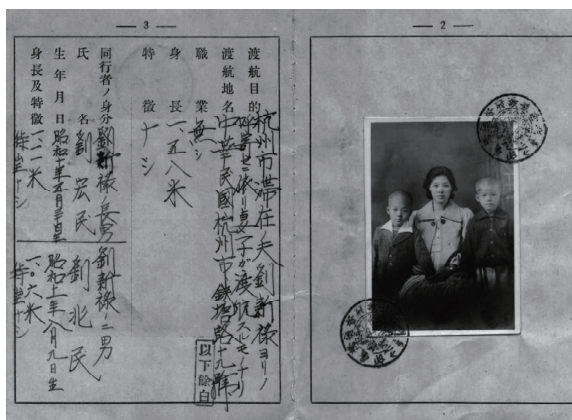 — 2 —
— 3 —
渡航目的 杭州市滞在ノ夫劉新禄ヨリノ
呼寄セニ依リ妻子ガ渡航スルモノナリ
渡航地名 中華民國杭州市 路十九號
以下餘白
職業 無シ
身長 一、五八米
特徴 ナシ
同行者ノ身分 劉新禄ノ長男 劉新禄ノ二男
氏名 劉宏民 劉北民
生年月日 昭和十年五月 日生 昭和十一年八月九日生
身長及特徴 一、一一米 一、〇六米
特徴ナシ 特徴ナシ